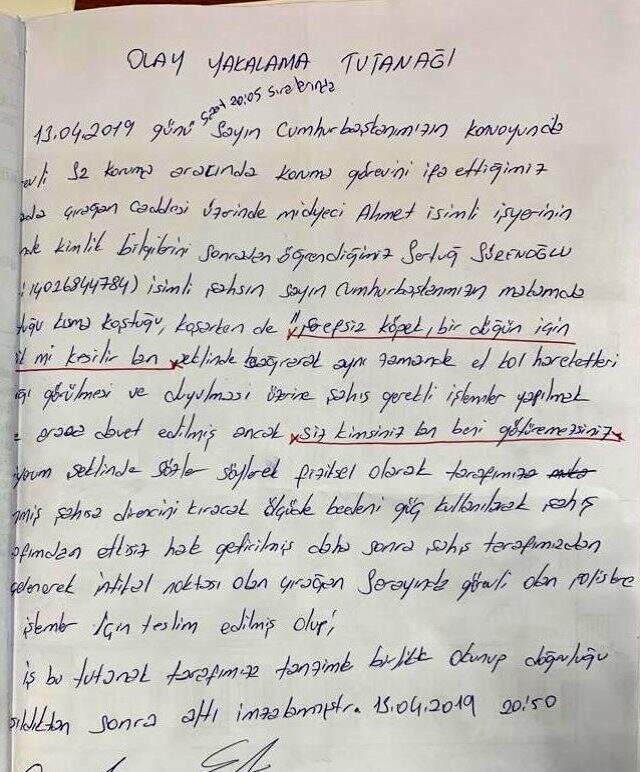 OLAY YAKALAMA TUTANAĞI
saat 20:05 sıralarında
13.04.2019 günü Sayın Cumhurbaşkanımızın konvoyunda
evli S2 koruma aracında koruma görevini ifa ettiğimiz
ada çırağan caddesi üzerinde midyeci Ahmet isimli işyerinin
nde kimlik bilgilerini sonradan öğrendiğimiz Sertuğ SÜRENOĞLU
: 14026844784) isimli şahsın sayın Cumhurbaşkanımızın makamda
duğu kısma koştuğu, koşarken de "şerefsiz köpek, bir düğün için
mi kesilir lan şeklinde bağırarak aynı zamanda el kol hareketleri
ığı görülmesi ve duyulması üzerine şahıs gerekli işlemler yapılmak
araca davet edilmiş ancak siz kimsiniz lan beni götüremezsiniz
yorum şeklinde sözler söylerek fiziksel olarak tarafımıza
nmiş şahsa direncini kıracak ölçüde bedeni güç kullanılarak şahıs
afımdan etkisiz hale getirilmiş daha sonra şahıs tarafımızdan
intikal noktası olan çırağan Sarayında görevli olan polislere
işlemler için teslim edilmiş olup;
iş bu tutanak tarafımızca tanzimle birlikte okunup doğruluğu
ıldıktan sonra altı imzalanmıştır. 13.04.2019 20:50